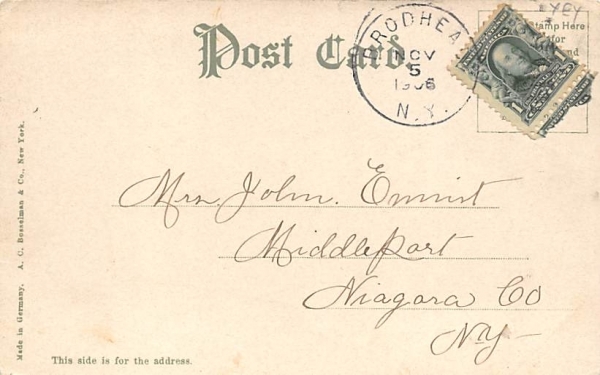 Post Card.
BRODHEAD
NOV
5
1906
N.Y.
Stamp Here
for
Mrs. John. Ernist
Middleport
Niagara Co
NY-
This side is for the address.
Made in Germany. A. C. Bosselman & Co., New York.